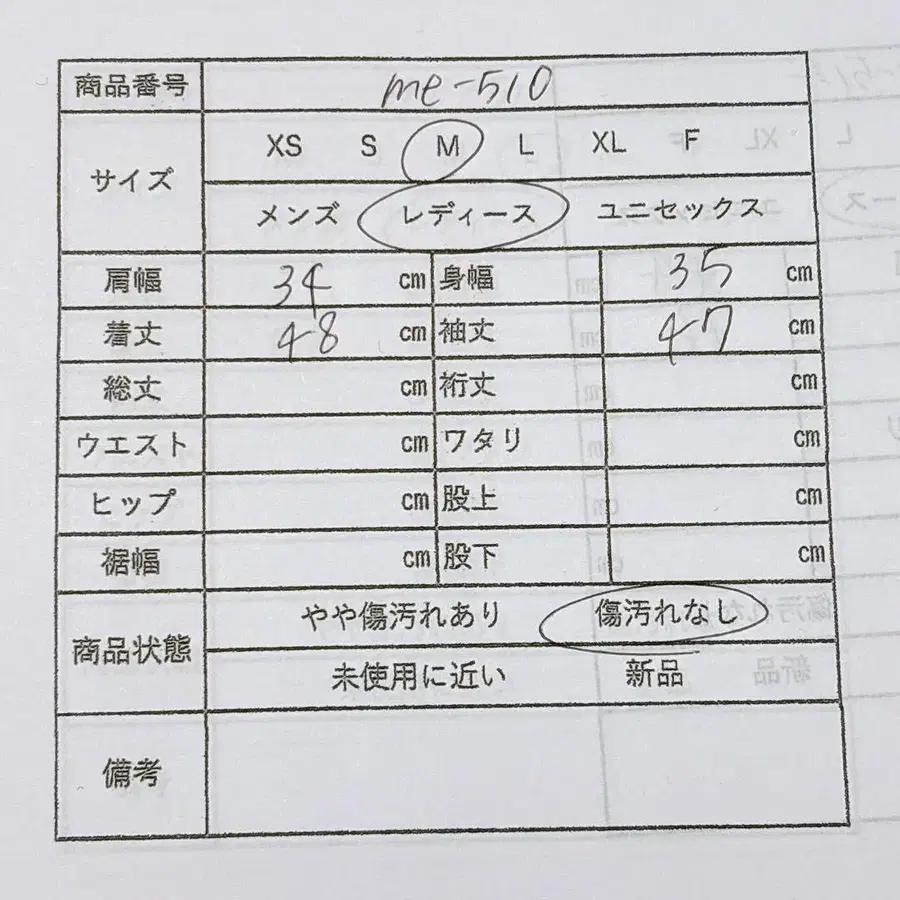 商品番号 me-510
サイズ XS S M L XL F
メンズ レディース ユニセックス
肩幅 34 cm 身幅 35 cm
着丈 48 cm 袖丈 47 cm
総丈 cm 裄丈 cm
ウエスト cm ワタリ cm
ヒップ cm 股上 cm
裾幅 cm 股下 cm
商品状態 やや傷汚れあり 傷汚れなし
未使用に近い 新品
備考